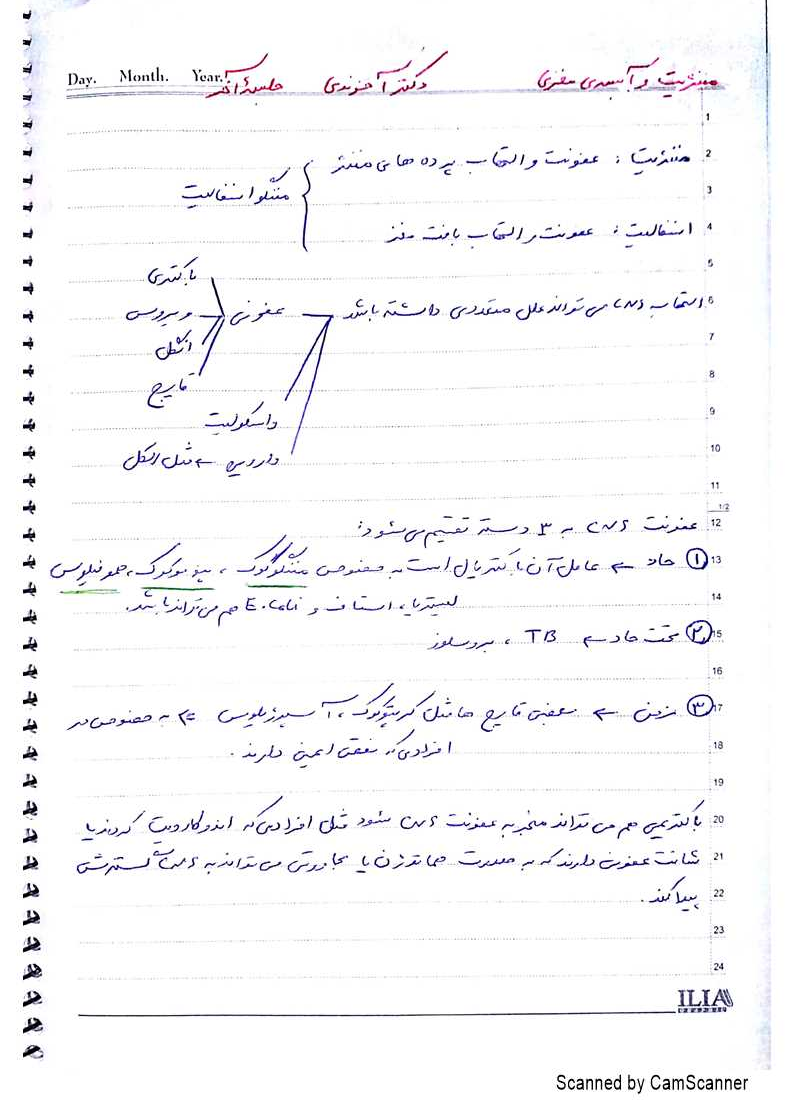 Day. Month. Year.
مننژیت و آبسه‌ی مغزی دکتر آخوندی جلسهٔ آخر
1
2 مننژیت : عفونت و التهاب پرده های مننژ
3 مننگوانسفالیت
4 انسفالیت : عفونت و التهاب بافت مغز
5
باکتری
6 التهاب CNS می تواند علل متعددی داشته باشد عفونی ویروس
7 انگل
8 قارچ
9 واسکولیت
10 دارویی ← مثل الکل
11
1/2
12 عفونت CNS به ۳ دسته تقسیم می شود:
13 ① حاد ← عامل آن باکتریال است به خصوص مننگوکوک ، پنوموکوک ، هموفیلوس
14 لیستریا ، استاف و E. هم می تواند باشد.
15 ② تحت حاد ← TB ، بروسلوز
16
17 ③ مزمن ← بعضی قارچ ها مثل کریپتوکوک ، آسپرژیلوس ⇐ به خصوص در
18 افرادی که نقص ایمنی دارند .
19
20 باکتریمی هم می تواند منجر به عفونت CNS شود مثل افرادی که اندوکاردیت کردند یا
21 شانت عفونی دارند که به صورت هماتوژن یا مجاورتی می تواند به CNS گسترش
22 پیدا کند .
23
24
ILIA
GRAPHIC
Scanned by CamScanner